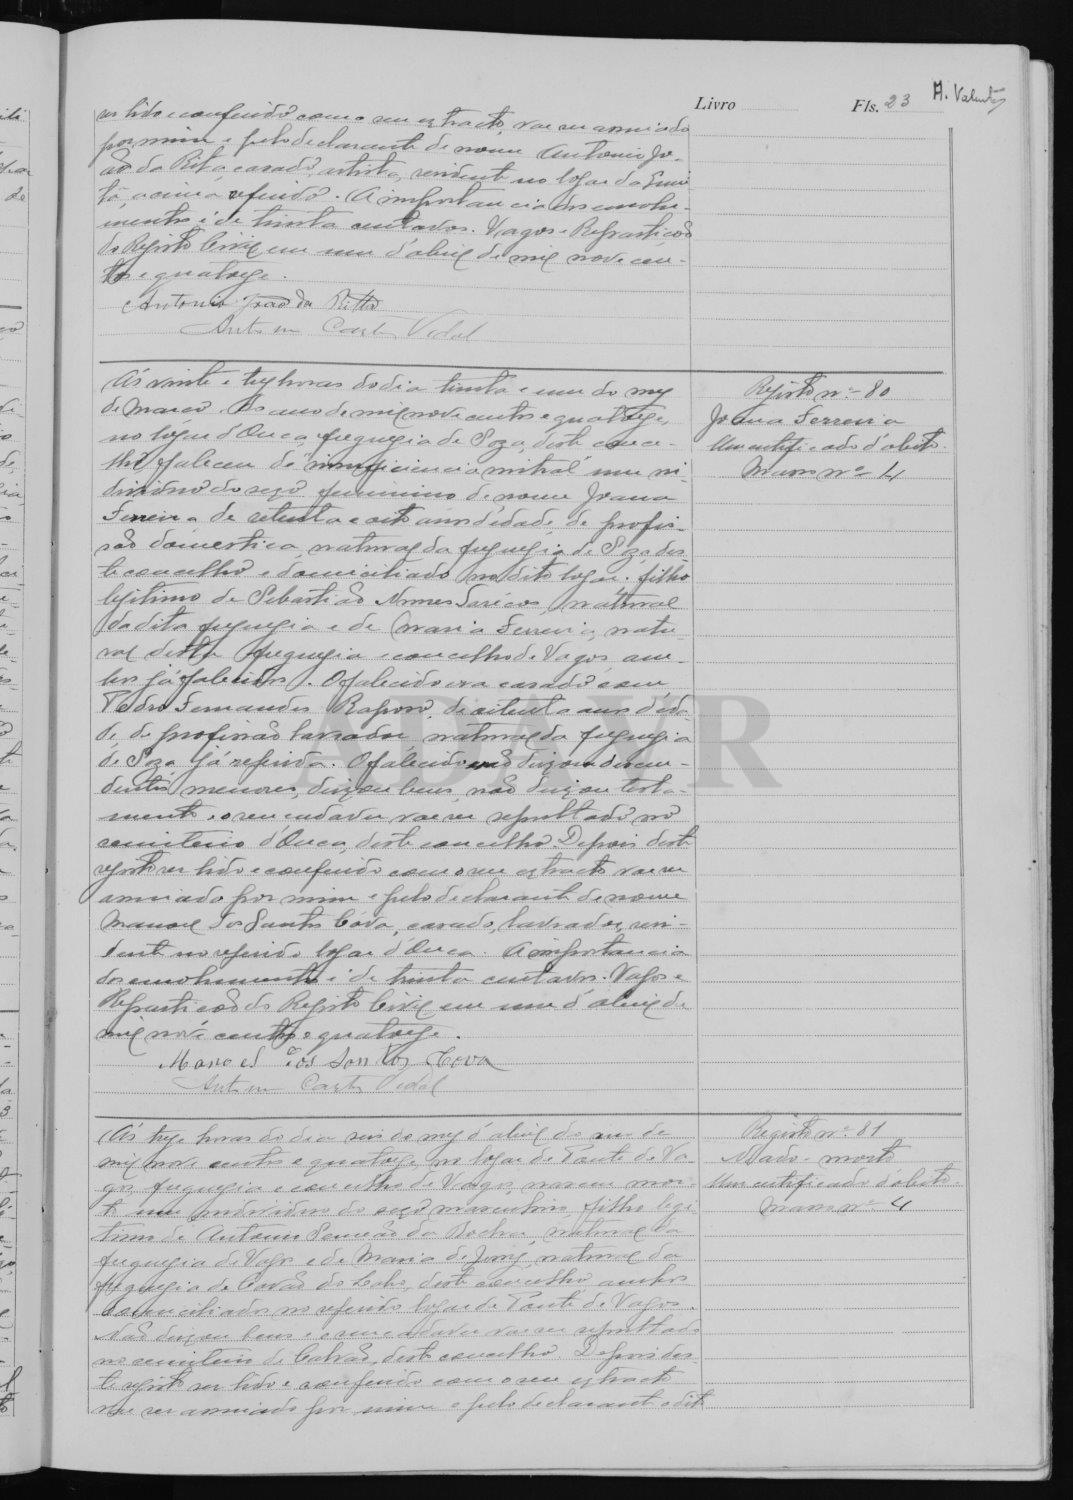 Livro Fls. 23 A. Valente
ser lido e conferido com o seu extracto, vae ser assinado
por mim e pelo declarante de nome Antonio Jo-
ão da Rita, casado, artista, residente no logar da
acima referido. A importancia dos emolu-
mentos é de trinta centavos. Vagos e Repartição
do Registo Civil em um d'abril de mil nove cen-
tos e quatorze.
Antonio João da Ritta
Antonio Vidal
Ás vinte e tres horas do dia trinta e um do mez
de Março do ano de mil nove centos e quatorze,
no logar d'Ouca, freguezia de Soza, deste conce-
lho, faleceu de "insuficiencia mitral" um in-
dividuo do sexo feminino de nome Joana
Ferreira de setenta e oito anos d'edade, de profis-
são domestica, natural da freguezia de Soza, des-
te concelho e domiciliado no dito logar, filho
legitimo de Sebastião Nunes, natural
da dita freguezia e de Maria Ferreira, natu-
ral desta freguezia e concelho de Vagos, am-
bos já falecidos. O falecido era casado com
Pedro Fernandes Raposo, de oitenta anos d'eda-
de, de profissão lavrador, natural da freguezia
de Soza já referida. O falecido não deixou descen-
dentes menores, deixou bens, não deixou testa-
mento, e o seu cadaver vae ser sepultado no
cemiterio d'Ouca, deste concelho. Depois deste
registo ser lido e conferido com o seu extracto vae ser
assinado por mim e pelo declarante de nome
Manoel dos Santos Cóva, casado, lavrador, resi-
dente no referido logar d'Ouca. A importancia
dos emolumentos é de trinta centavos. Vagos e
Repartição do Registo Civil em um d'abril de
mil nove centos e quatorze.
Manoel dos Santos Cova
Antonio Vidal
Registo nº 80
Joana Ferreira
Um certificado d'obito
Maço nº 4
Ás treze horas do dia seis do mez d'abril do ano de
mil nove centos e quatorze, no logar de Ponte de Va-
gos, freguezia e concelho de Vagos, nasceu mor-
to um individuo do sexo masculino, filho legi-
timo de Antonio da Rocha, natural da
freguezia de Vagos e de Maria de Jesus, natural da
freguezia de Covão do Lobo, deste concelho, ambos
domiciliados no referido logar de Ponte de Vagos.
Não deixou bens e o seu cadaver vae ser sepultado
no cemiterio de Calvão, deste concelho. Depois des-
te registo ser lido e conferido com o seu extracto
vae ser assinado por mim e pelo declarante o dito
Registo nº 81
Nado-morto
Um certificado d'obito
Maço nº 4
ADAVR